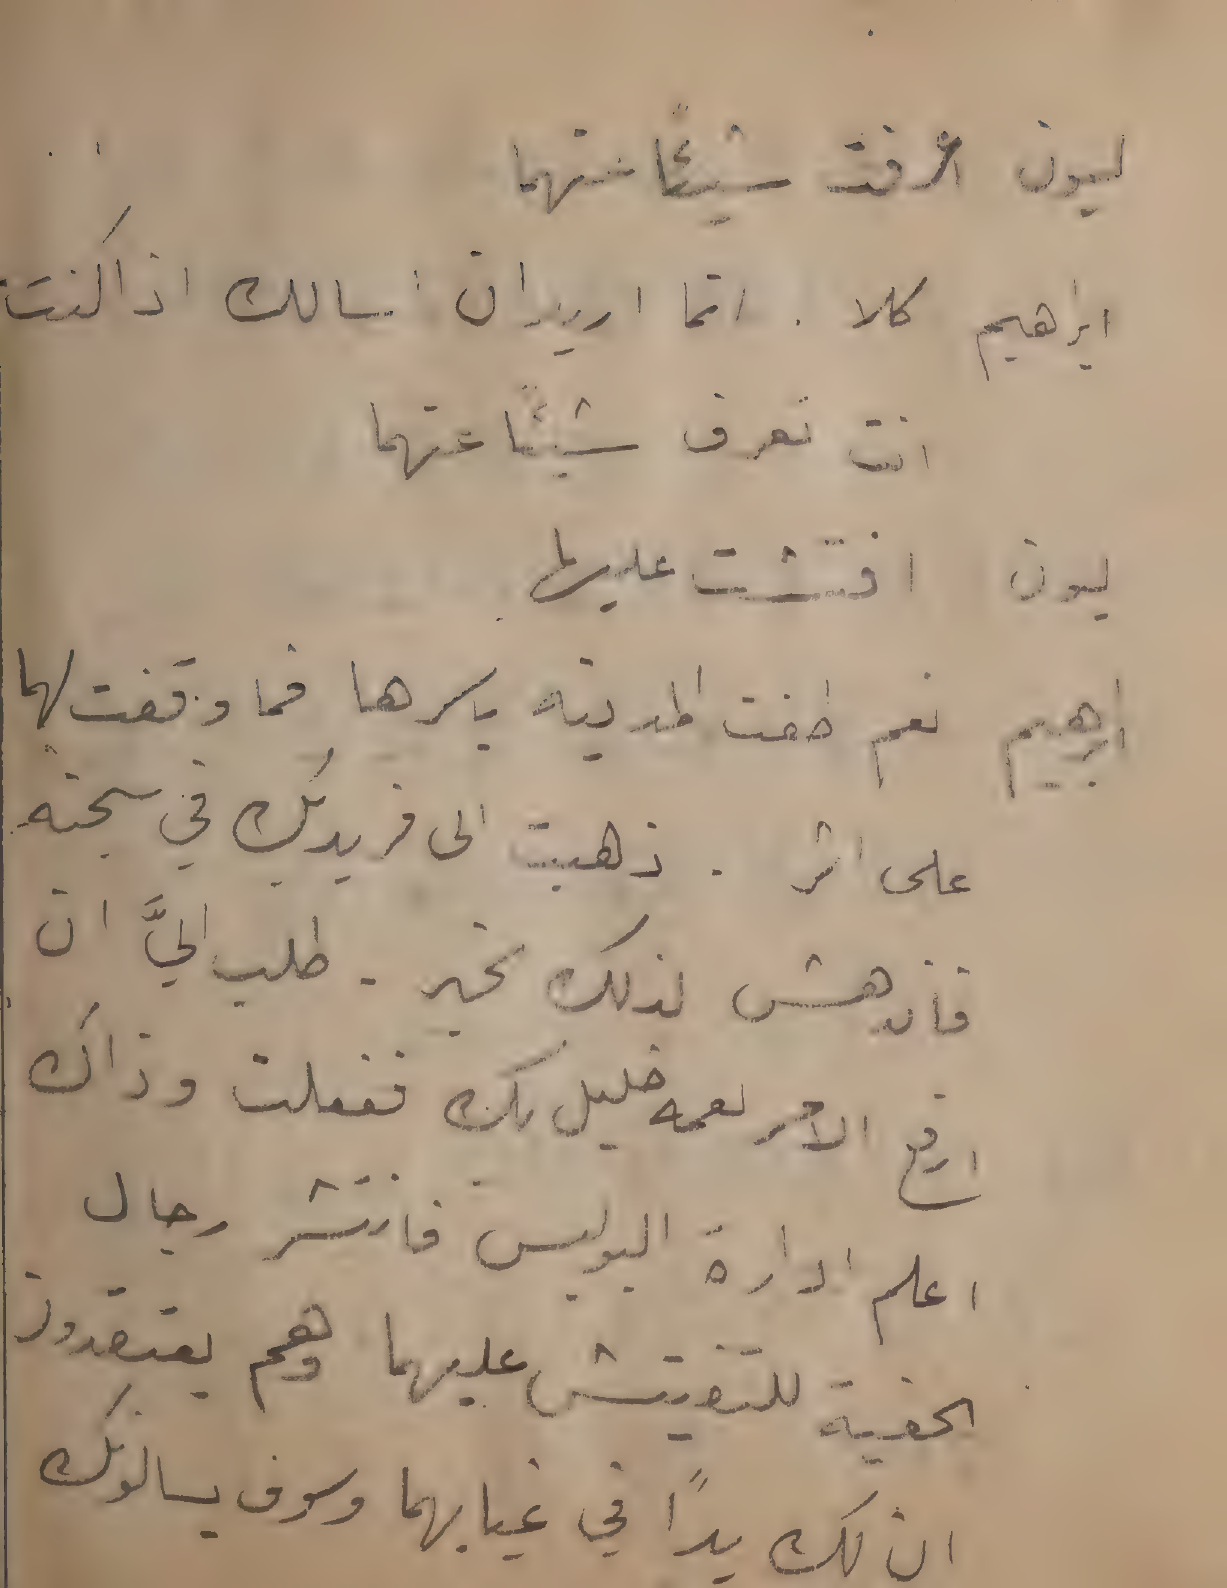 ليون اعرفت شيئًا عنهما
ابراهيم كلا . انما اريد ان اسالك اذا كنت
انت تعرف شيئًا عنهما
ليون افتشت عليهما
ابرهيم نعم طفت المدينه باسرها فما وقفت لهما
على اثر . ذهبت الى فريد بك في سجنه
فاندهش لذلك الخبر . طلب اليَّ ان
ارفع الامر لعمه خليل بك ففعلت وذاك
اعلم ادارة البوليس فانتشر رجال
الخفية للتفتيش عليهما وهم يعتقدون
ان لك يدًا في غيابهما وسوف يسالونك